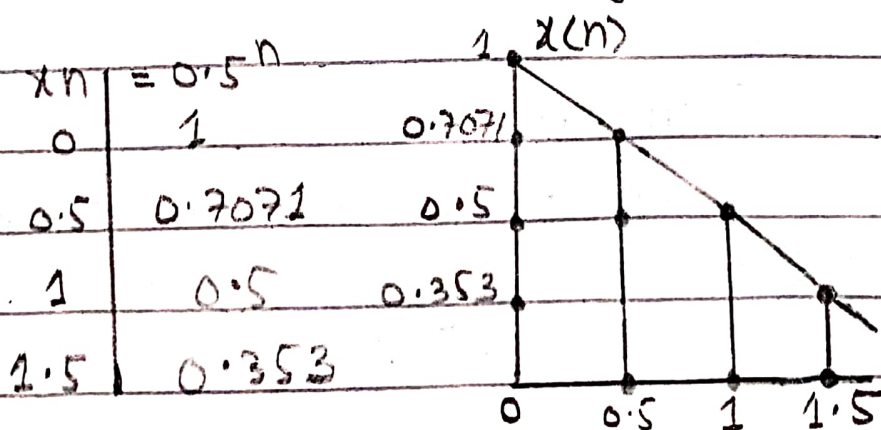 xn = 0.5^n
0 1
0.5 0.7071
1 0.5
1.5 0.353
1 x(n)
0.7071
0.5
0.353
0 0.5 1 1.5